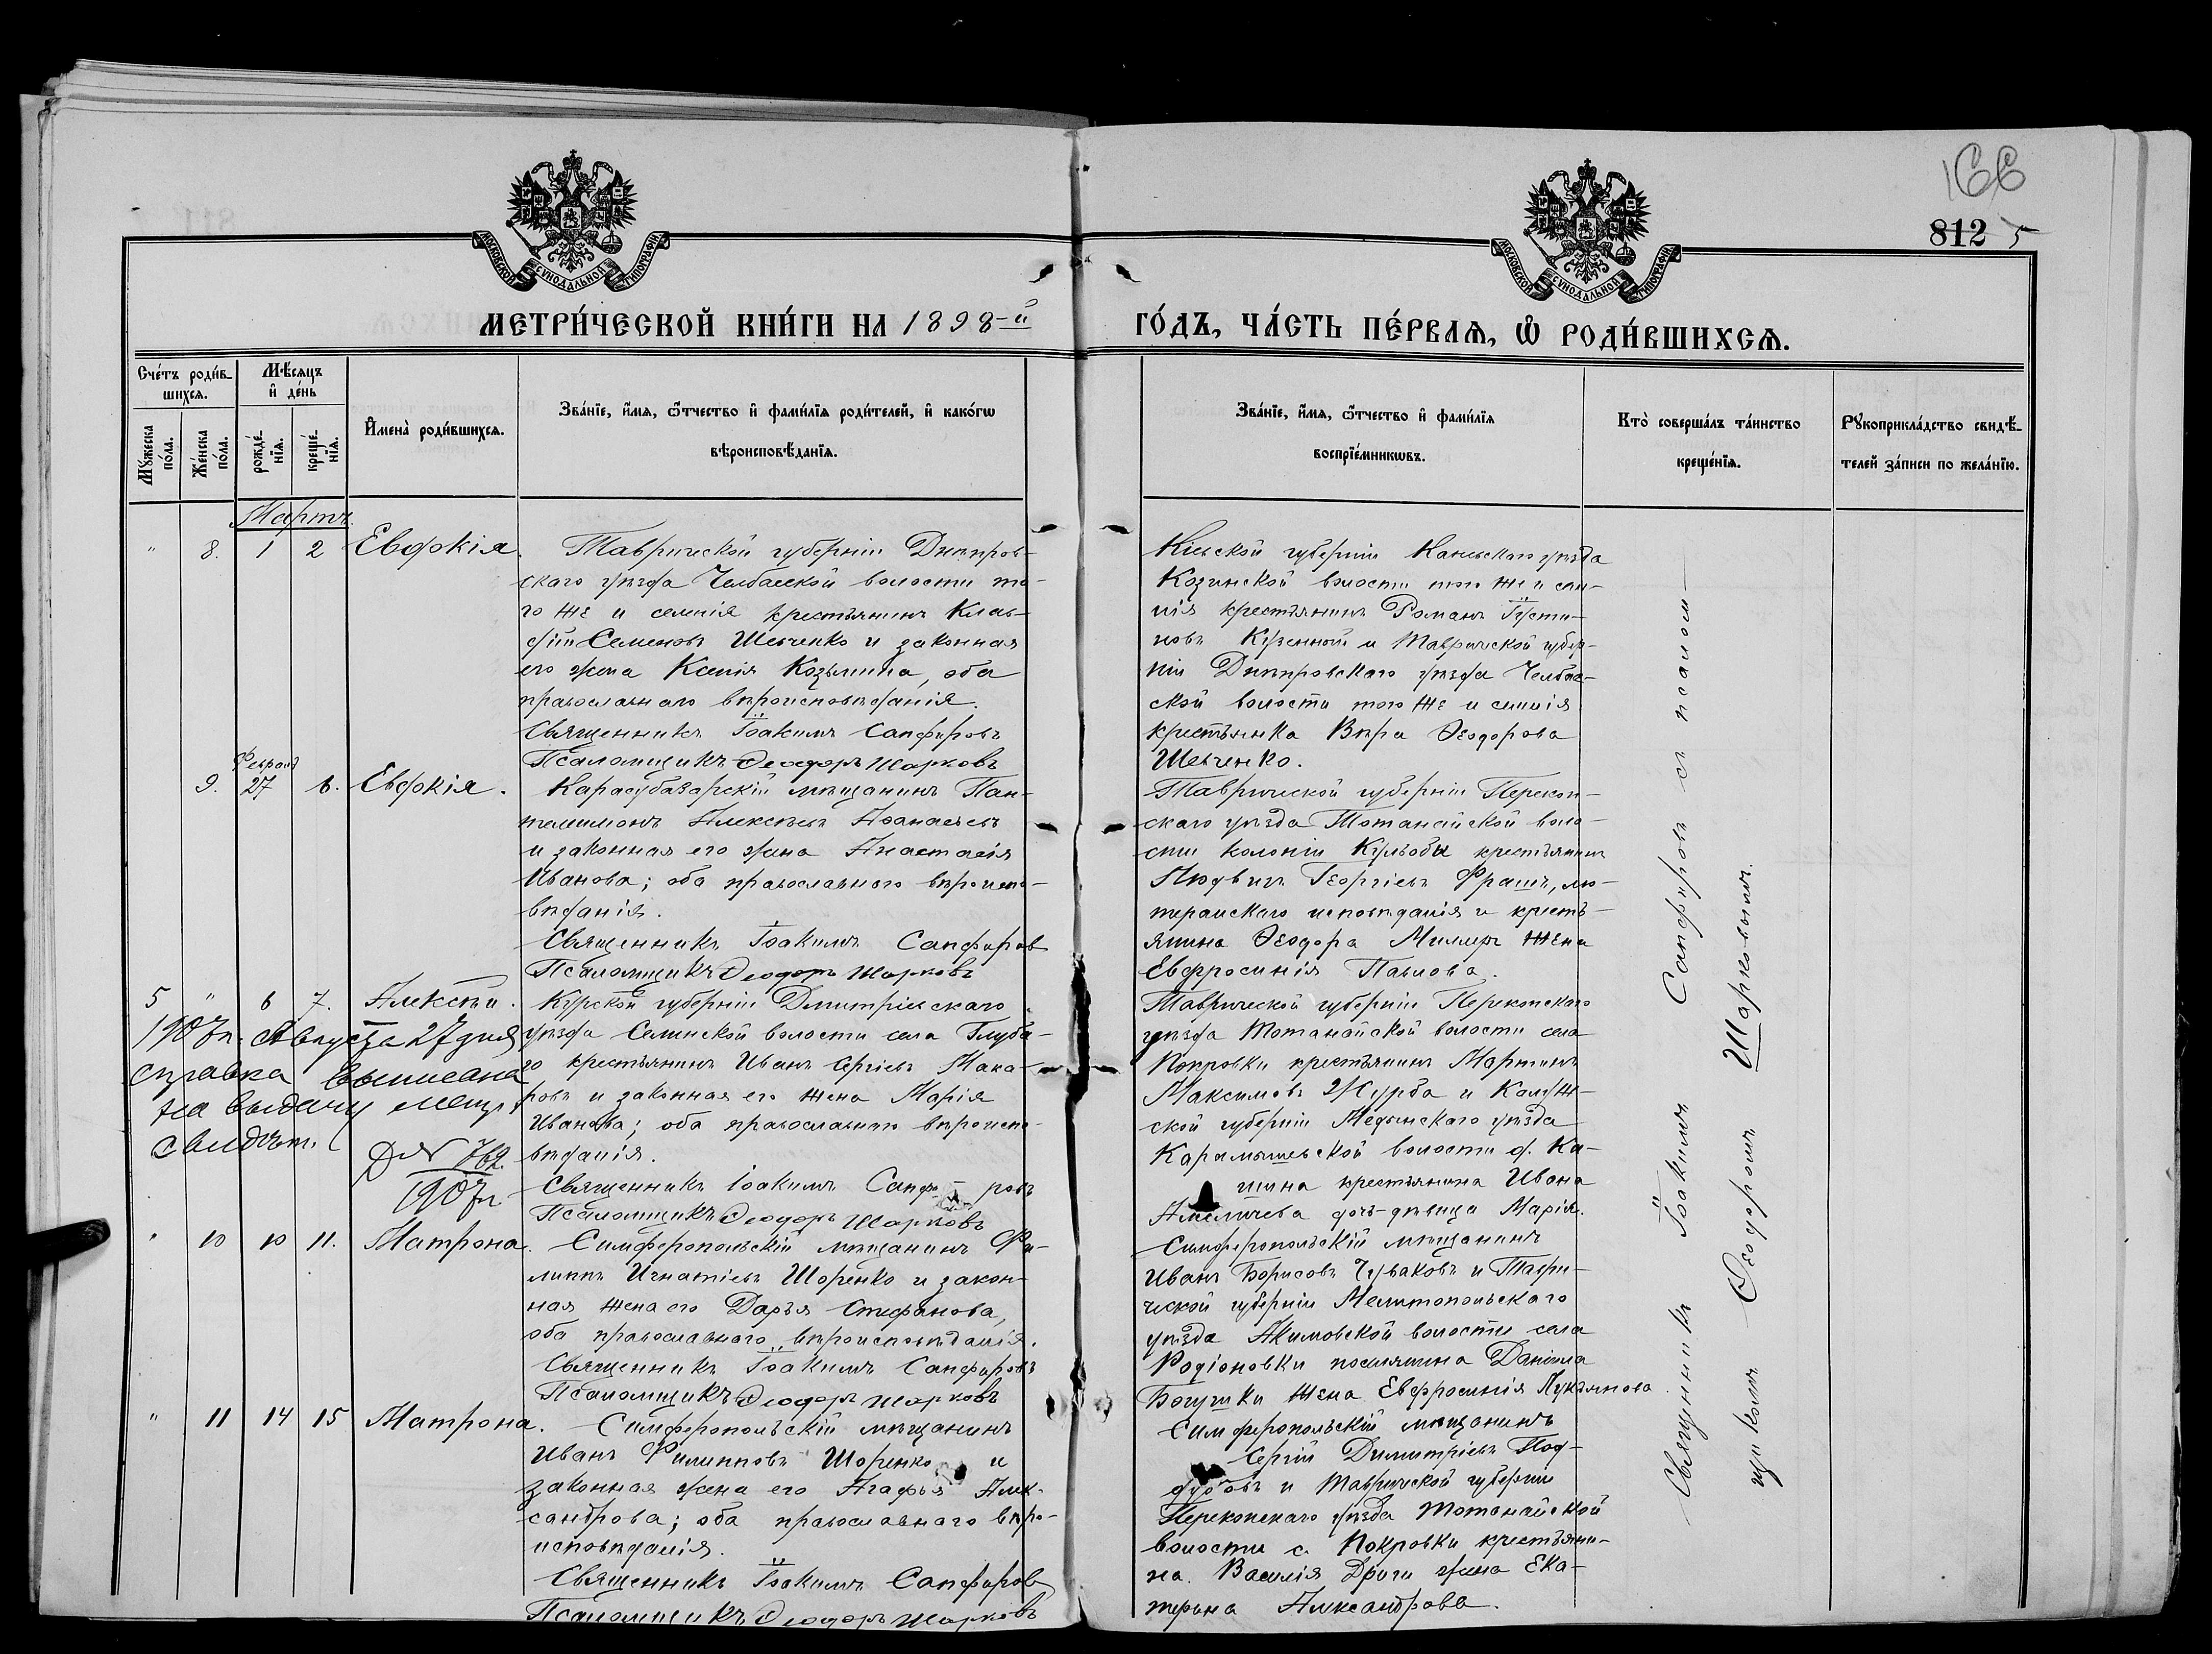 166
812 5
МОСКОВСКОЙ СѴНОДАЛЬНОЙ ТИПОГРАФІИ
МОСКОВСКОЙ СѴНОДАЛЬНОЙ ТИПОГРАФІИ
МЕТРИ́ЧЕСКОЙ КНИ́ГИ НА 1898-й
ГО́ДЪ, ЧА́СТЬ ПЕ́РВАѦ, Ѡ҆ РОДИ́ВШИХСѦ.
Сче́тъ роди́в-
шихсѧ.
Мѣ́сѧцъ
и҆ де́нь
Мꙋ́жеска
по́ла.
Же́нска
по́ла.
рожде́-
нїѧ.
креще́-
нїѧ.
И҆мена̀ роди́вшихсѧ.
Зва́нїе, и҆́мѧ, ѻ҆́тчество и҆ фами́лїѧ роди́телей, и҆ како́гѡ
вѣроисповѣ́данїѧ.
Зва́нїе, и҆́мѧ, ѻ҆́тчество и҆ фами́лїѧ
воспрїе́мникѡвъ.
Кто̀ соверша́лъ та́инство
креще́нїѧ.
Рꙋкоприкла́дство свидѣ́-
телей за́писи по жела́нїю.
Мартъ.
" 8. 1 2 Евдокія.
Таврической губерніи Днѣпров-
скаго уѣзда Челбасской волости то-
го же и селенія крестьянинъ Клав-
дій Семеновъ Шевченко и законная
его жена Ксенія Козьмина, оба
православнаго вѣроисповѣданія.
Священникъ Іоакимъ Сапфировъ
Псаломщикъ Ѳеодоръ Шарковъ
Кіевской губерніи Каневскаго уѣзда
Козинской волости того же и селе-
нія крестьянинъ Романъ Іусти-
новъ и Таврической губер-
ніи Днѣпровскаго уѣзда Челбас-
ской волости того же и селенія
крестьянка Вѣра Ѳеодорова
Шевченко.
Феврал
9. 27 6. Евдокія.
Карасубазарскій мѣщанинъ Пан-
телеимонъ Алексѣевъ Аѳанасьевъ
и законная его жена Анастасія
Иванова; оба православнаго вѣроиспо-
вѣданія.
Священникъ Іоакимъ Сапфиров
Псаломщикъ Ѳеодоръ Шарковъ
Таврической губерніи Перекоп-
скаго уѣзда Тотанайской воло-
сти колоніи Кульоба крестьянинъ
Людвигъ Георгіевъ Фрашъ, лю-
теранскаго исповѣданія и кресть-
янина Ѳеодора Миллеръ жена
Евфросинія Павлова.
5 " 6 7. Алексѣй.
Курской губерніи Дмитріевскаго
уѣзда Селинской волости села Глубо-
го крестьянинъ Иванъ Сергіевъ Мака-
ровъ и законная его жена Марія
Иванова; оба православнаго вѣроиспо-
вѣданія.
Священникъ Іоакимъ Сапфи-ровъ
Псаломщикъ Ѳеодоръ Шарковъ
1907г. Августа 27 дня
справка выписана
на выдачу метр.
свидѣт.
Д № 762.
1907г
Таврической губерніи Перекопскаго
уѣзда Тотанайской волости села
Покровки крестьянинъ Мартинъ
Максимовъ Журба и Калуж-
ской губерніи Медынскаго уѣзда
Карамышевской волости д. Ка-
шина крестьянина Ивана
Амеличева дочь-дѣвица Марія.
" 10 10 11. Матрона.
Симферопольскій мѣщанинъ Фи-
липпъ Игнатіевъ Шоренко и закон-
ная жена его Дарья Стефанова,
оба православнаго вѣроисповѣданія.
Священникъ Іоакимъ Сапфировъ
Псаломщикъ Ѳеодоръ Шарковъ
Симферопольскій мѣщанинъ
Иванъ Борисовъ Чуваковъ и Таври-
ческой губерніи Мелитопольскаго
уѣзда Акимовской волости села
Родіоновки поселянина Даніила
Богушки жена Евфросинія Лукьянова.
" 11 14 15 Матрона.
Симферопольскій мѣщанинъ
Иванъ Филипповъ Шоренко и
законная жена его Агафья Алек-
сандрова; оба православнаго вѣро-
исповѣданія.
Священникъ Іоакимъ Сапфиров
Псаломщикъ Ѳеодоръ Шарковъ
Симферопольскій мѣщанинъ
Сергій Димитріевъ Под-
дубовъ и Таврической губерніи
Перекопскаго уѣзда Тотанайской
волости с. Покровки крестьяни-
на Василія Дроги жена Ека-
терина Александрова.
Священникъ Іоакимъ Сапфировъ съ псалом-
щикомъ Ѳеодоромъ Шарковымъ.